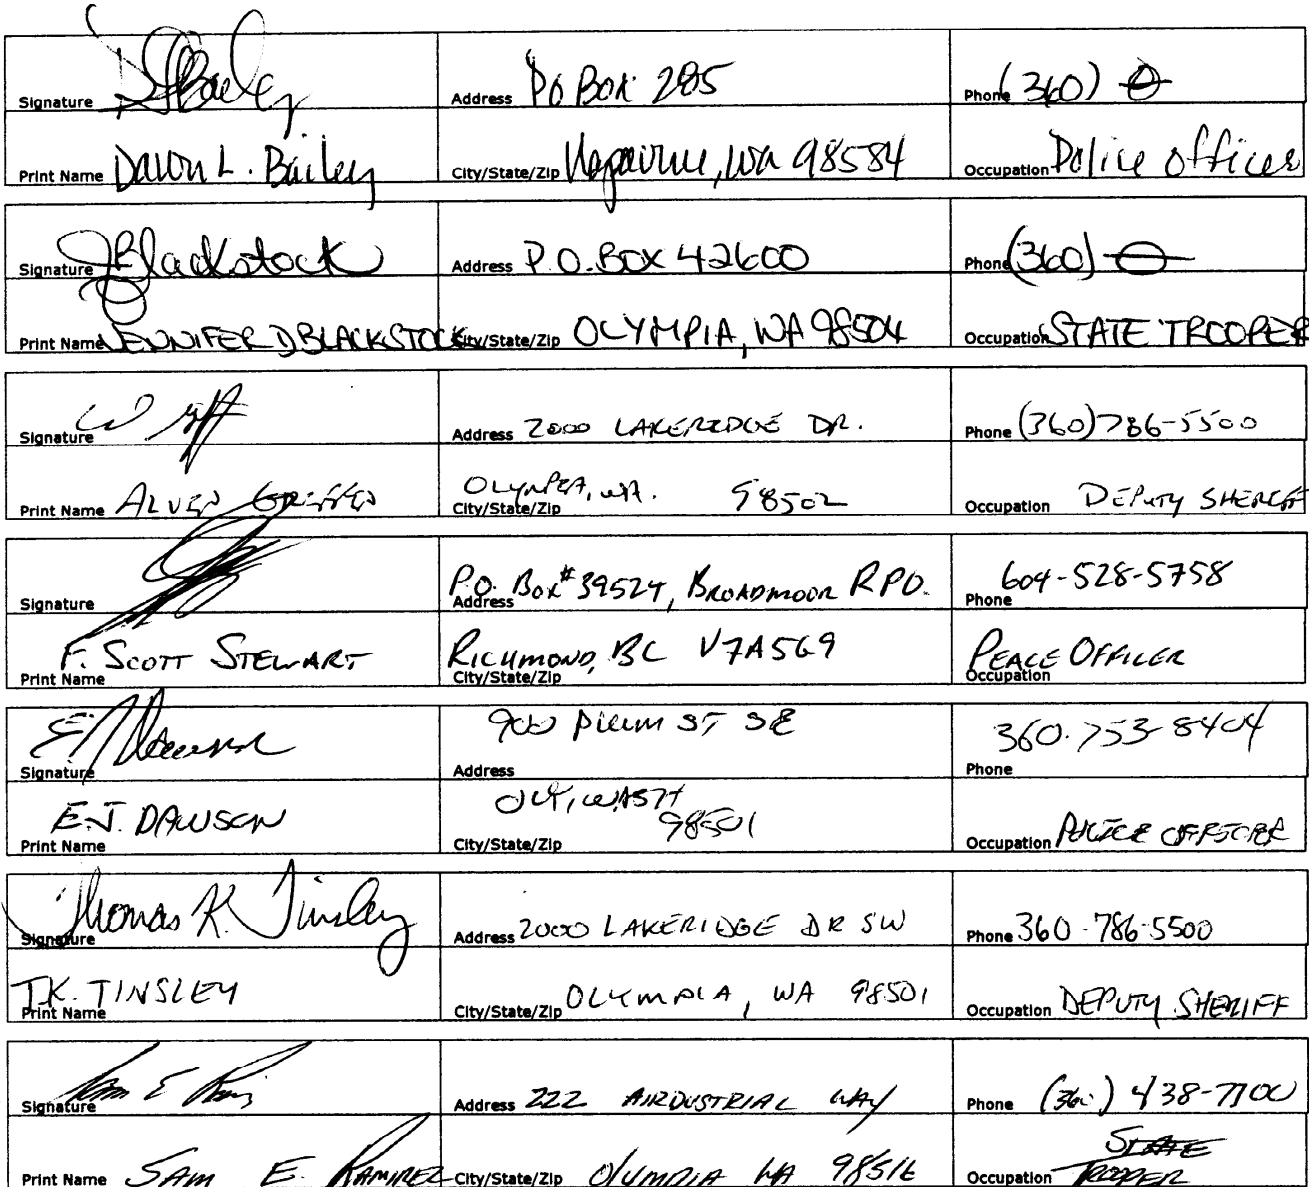 Signature DLBailey Address PO Box 285 Phone (360) 0
Print Name Dawn L. Bailey City/State/Zip WA 98584 Occupation Police Officer
Signature JBlackstock Address P.O. BOX 42600 Phone (360) 0
Print Name JENNIFER D BLACKSTOCK City/State/Zip OLYMPIA, WA 98504 Occupation STATE TROOPER
Signature Address 2000 LAKERIDGE DR. Phone (360) 786-5500
Print Name City/State/Zip OLYMPIA, WA. 98502 Occupation DEPUTY SHERIFF
Signature Address P.O. Box #39527, BROADMOOR RPO. Phone 604-528-5758
Print Name F. SCOTT STEWART City/State/Zip RICHMOND, BC V7A5G9 Occupation PEACE OFFICER
Signature E.J. Dawson Address 900 Plum ST SE Phone 360.753-8404
Print Name E.J. DAWSON City/State/Zip OLY, WASH 98501 Occupation POLICE OFFICER
Signature Thomas K. Tinsley Address 2000 LAKERIDGE DR SW Phone 360-786-5500
Print Name T.K. TINSLEY City/State/Zip OLYMPIA, WA 98501 Occupation DEPUTY SHERIFF
Signature Address 222 AIRDUSTRIAL WAY Phone (360) 438-7100
Print Name SAM E. RAMIREZ City/State/Zip OLYMPIA WA 98516 Occupation STATE TROOPER